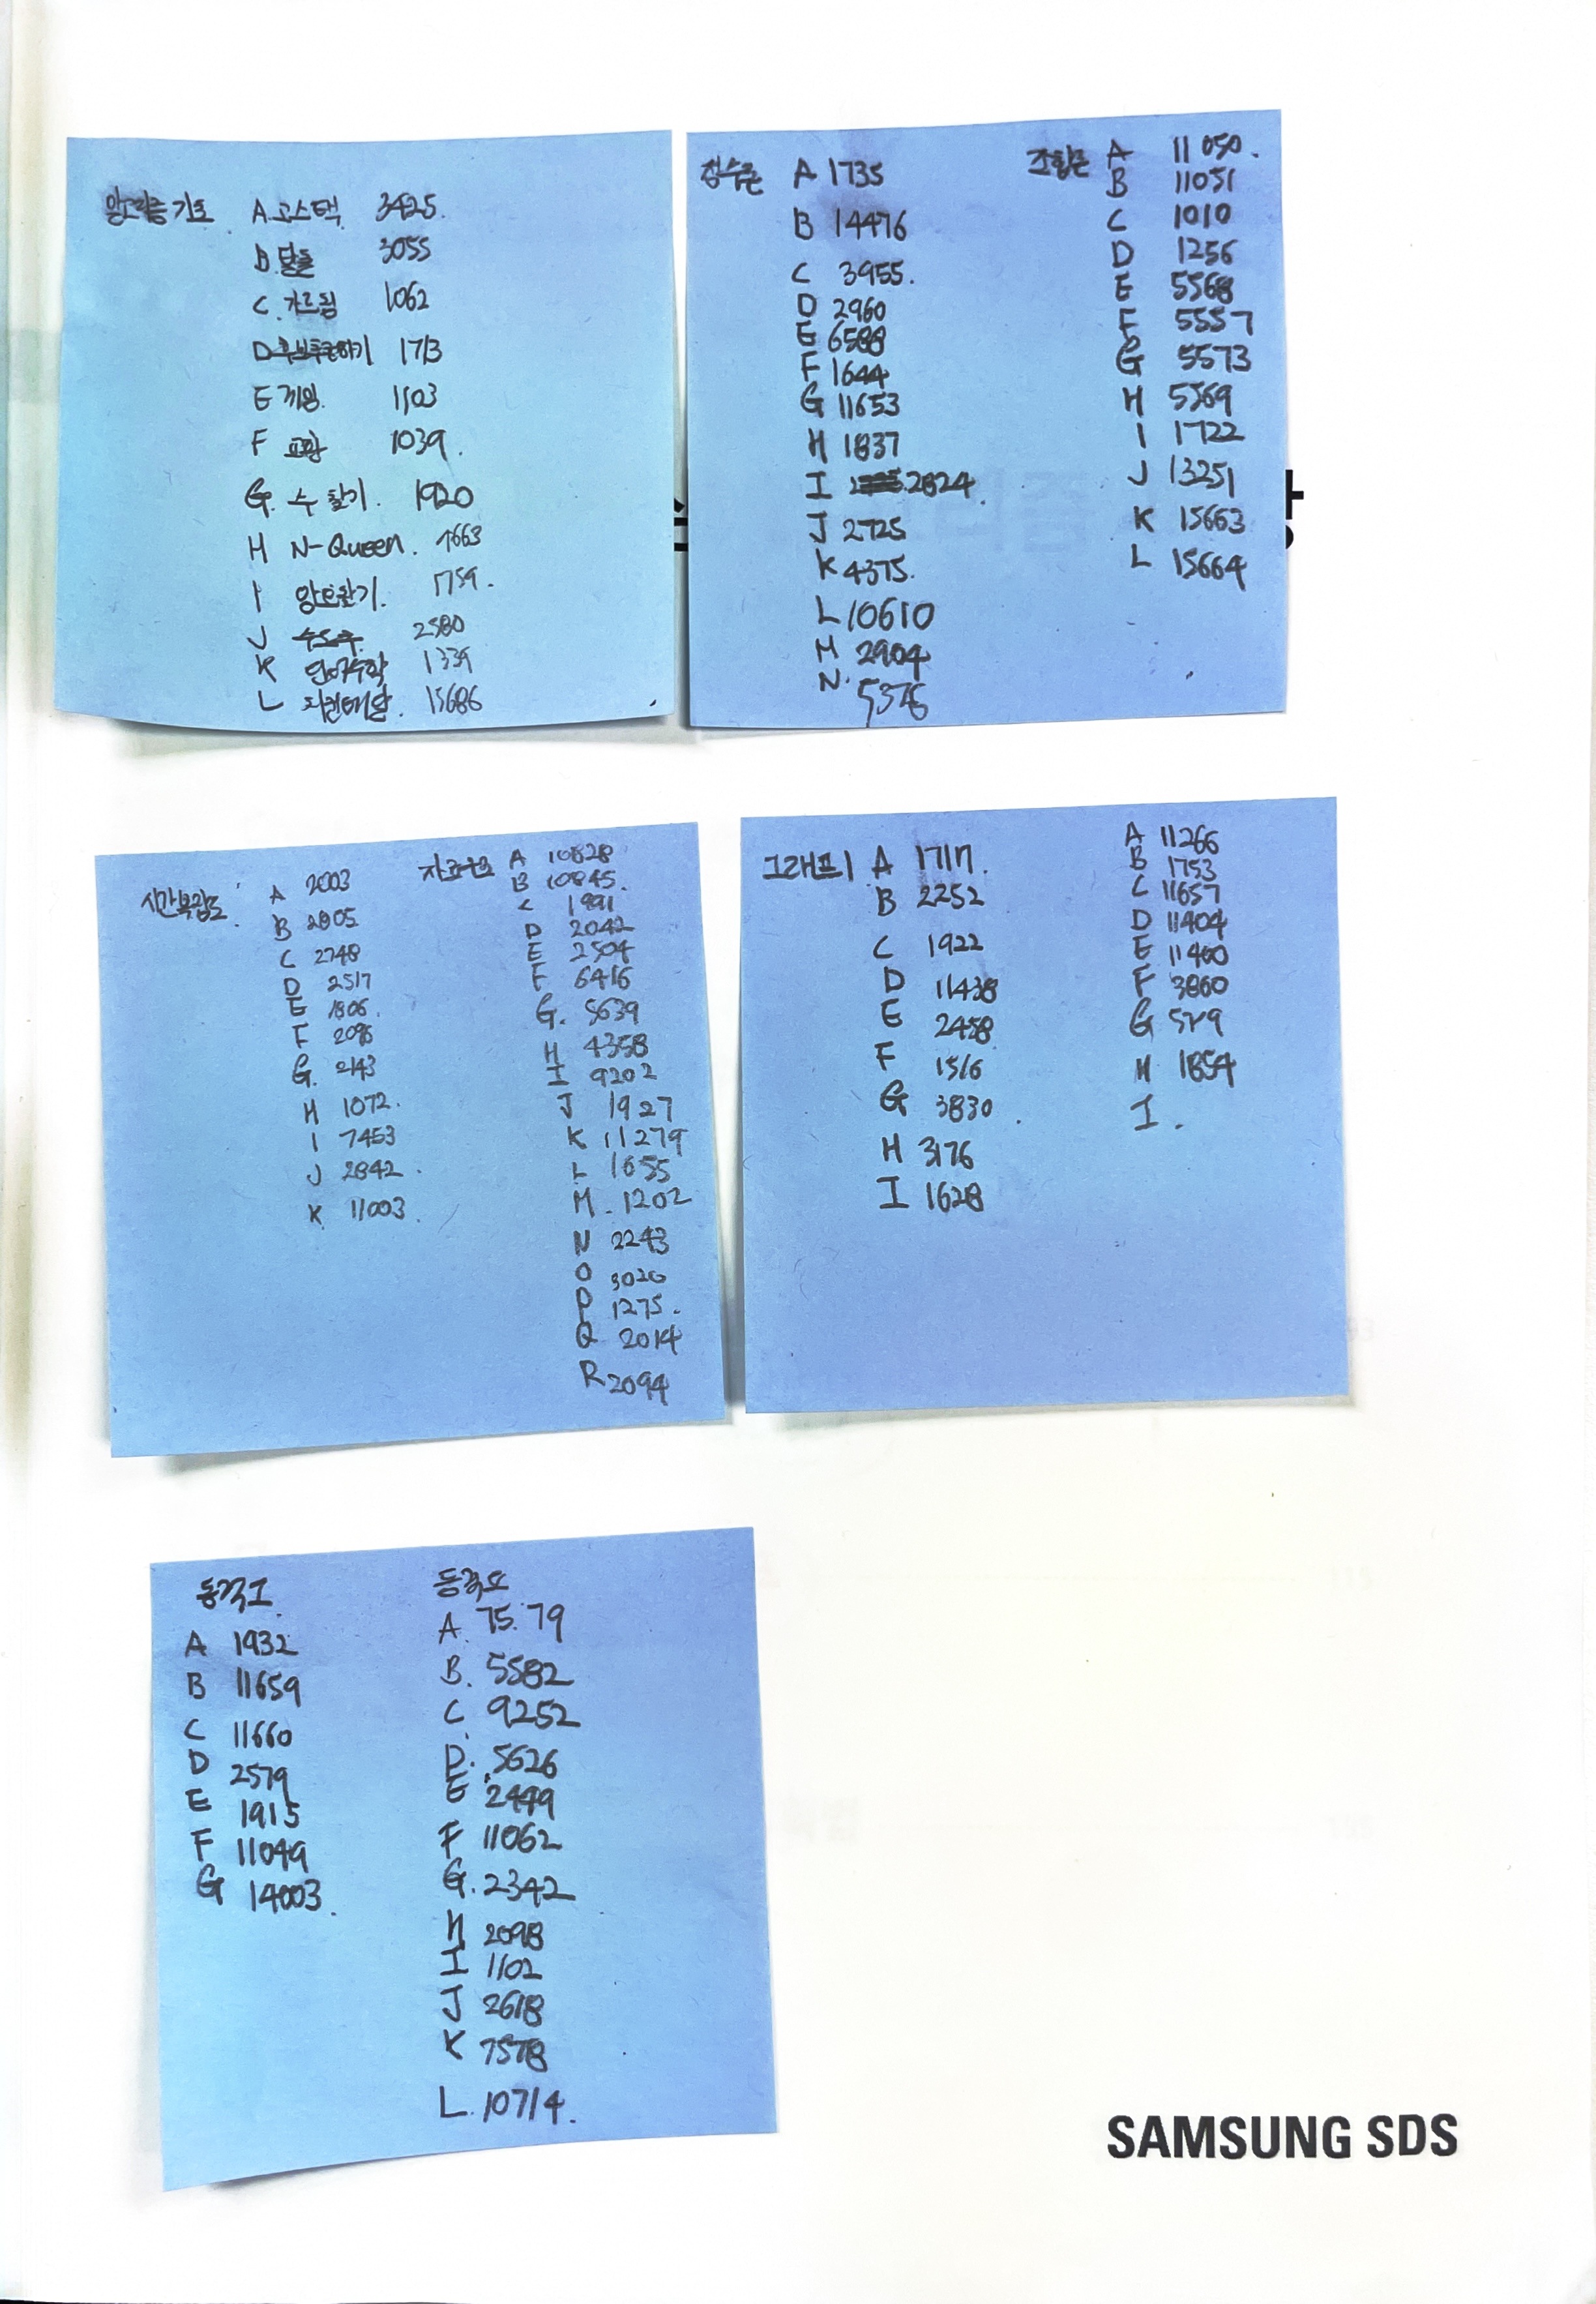 알고리즘 기초
A. 고스택 3425.
B. 달돌 3055
C. 가르침 1062
D 후보추천하기 1713
E 게임. 1103
F 교환 1039.
G. 수 찾기. 1920
H N-Queen. 9663
I 암호찾기. 1759.
J 스도쿠. 2580
K 단어수학 1339
L 치킨배달. 15686
정수론
A 1735
B 14476
C 3955.
D 2960
E 6588
F 1644
G 11653
H 1837
I 2824
J 2725
K 4375.
L 10610
M 2904
N. 5376
조합론
A 11050.
B 11051
C 1010
D 1256
E 5568
F 5557
G 5573
H 5569
I 1722
J 13251
K 15663
L 15664
시간복잡도
A 2003
B 2805
C 2748
D 2517
E 1806.
F 2096
G. 2143
H 1072.
I 7453
J 2842.
K 11003.
자료구조
A 10828
B 10845.
C 1991
D 2042
E 2504
F 6416
G. 5639
H 4358
I 9202
J 1927
K 11279
L 1655
M. 1202
N 2243
O 3020
P 1275.
Q 2014
R 2094
그래프1
A 1717.
B 2252
C 1922
D 11438
E 2458
F 1516
G 3830.
H 3176
I 1628
A 11266
B 1753
C 11657
D 11404
E 11400
F 3860
G 5719
H 1854
I.
동적1.
A 1932
B 11659
C 11660
D 2579
E 1915
F 11049
G 14003.
동적2
A. 75.79
B. 5582
C 9252
D. 5626
E 2449
F 11062
G. 2342
H 2098
I 1102
J 2618
K 7578
L. 10714.
SAMSUNG SDS